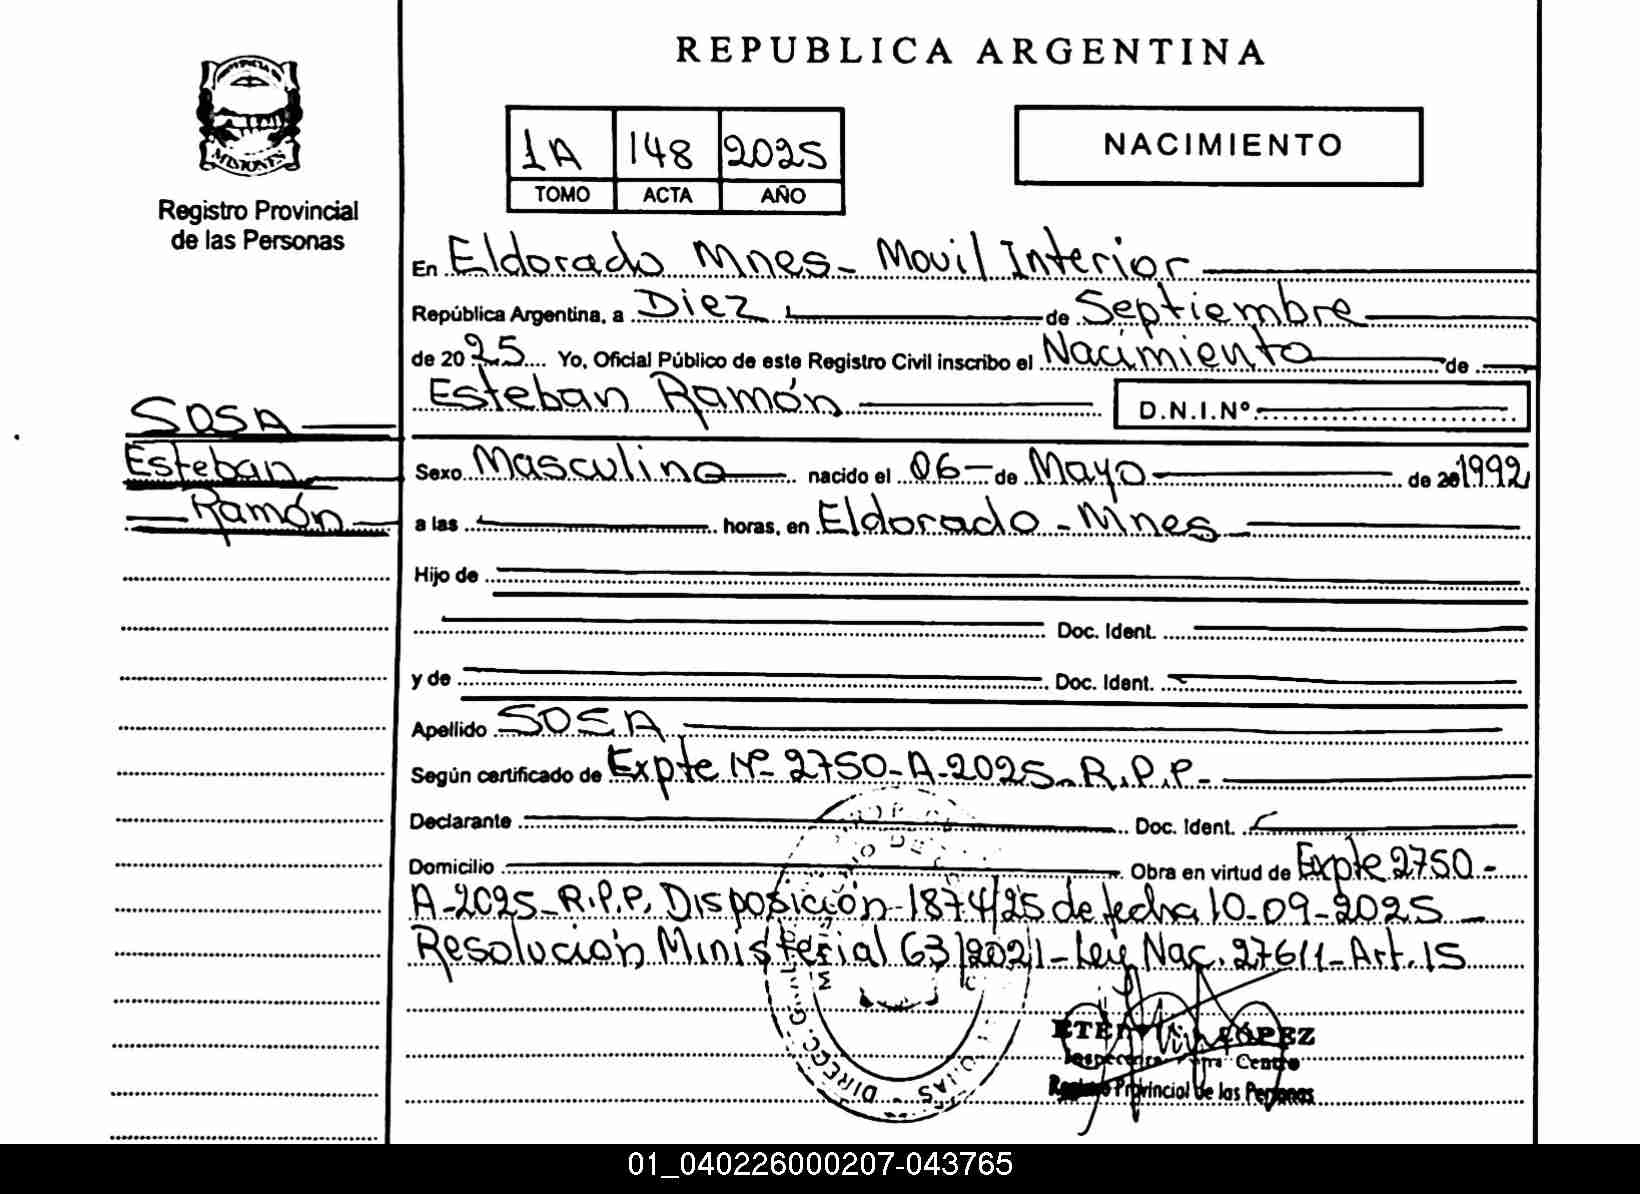 REPUBLICA ARGENTINA
PROVINCIA DE
MISIONES
Registro Provincial
de las Personas
1A 148 2025
TOMO ACTA AÑO
NACIMIENTO
En Eldorado Mnes- Movil Interior
República Argentina, a Diez de Septiembre
de 2025 Yo, Oficial Público de este Registro Civil inscribo el Nacimiento de
Esteban Ramón D.N.I.Nº
SOSA
Esteban
Ramón
Sexo Masculino nacido el 06 - de Mayo de 20 1992
a las horas, en Eldorado - Mnes
Hijo de
Doc. Ident.
y de Doc. Ident.
Apellido SOSA
Según certificado de Expte Nº 2750-A-2025-R.P.P.-
Declarante Doc. Ident.
Domicilio Obra en virtud de Expte 2750-
A-2025-R.P.P. Disposición 1874/25 de fecha 10-09-2025
Resolución Ministerial 63/2021-Ley Nac. 27611-Art. 15
LÓPEZ
Centro
Registro Provincial de las Personas
01_040226000207-043765